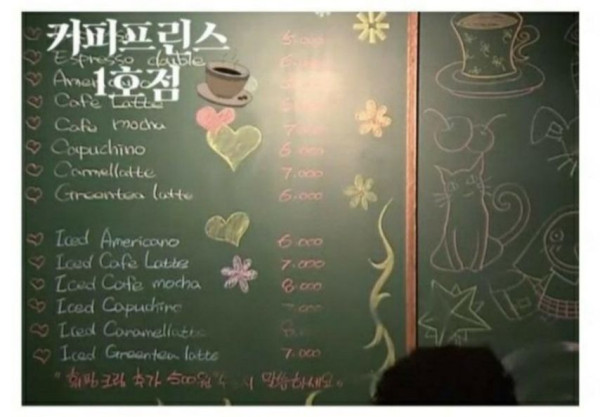 커피프린스
1호점
Espresso double
Cafe Latte
Cafe mocha 7.000
Capuchino 6.000
Caramellatte 7.000
Greentea latte 6.000
Iced Americano 6.000
Iced Cafe Latte 7.000
Iced Cafe mocha 8.000
Iced Capuchino
Iced Caramellatte
Iced Greentea latte 7.000
휘핑 크림 추가 500원 말씀하세요